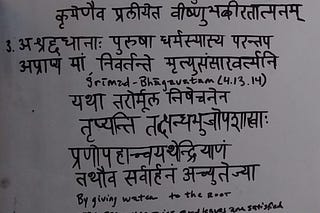 कृमेणैव प्रलीयेत वीष्णुभक्तीरतात्मनम्
3. अश्रद्दधानाः पुरुषा धर्मस्यास्य परन्तप
अप्राप्य मां निवर्तन्ते मृत्युसंसारवर्त्मनि
Śrīmad-Bhāgavatam (4.13.14)
यथा तरोर्मूल निषेचनेन
तृप्यन्ति तत्स्कन्धभुजोपशाखाः
प्राणोपहारान्यथेन्द्रियाणं
तथैव सर्वार्हनं अच्युतेज्या
By giving water to the root
and leaves are satisfied